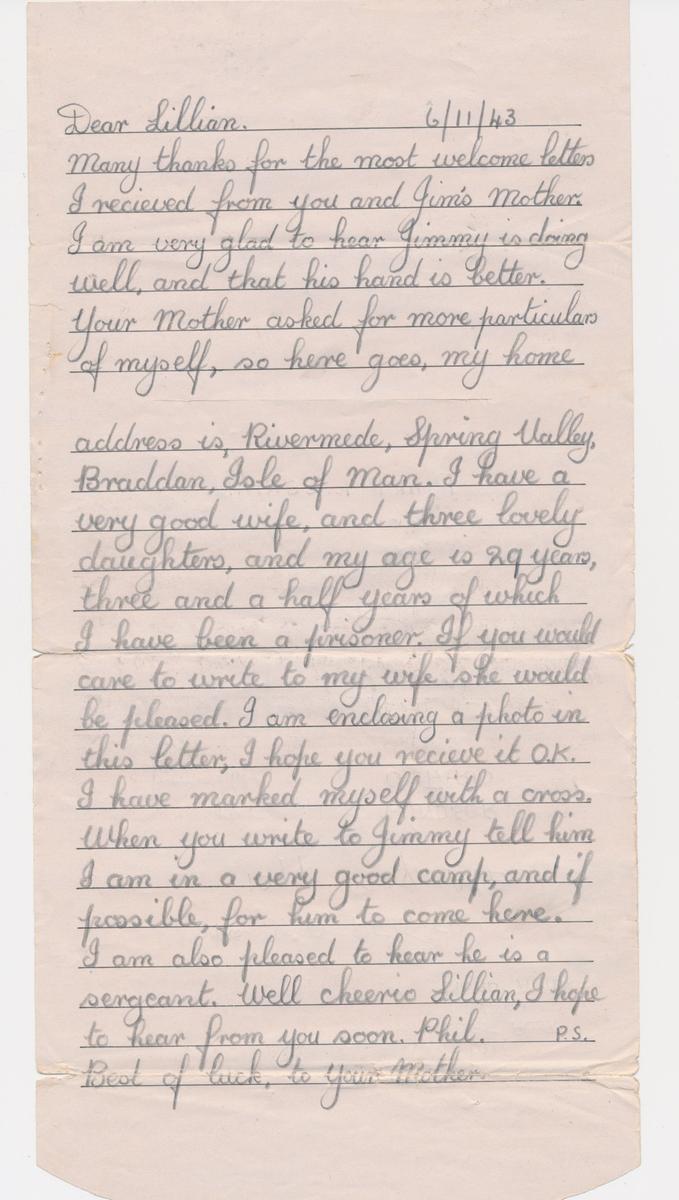 Dear Lillian. 6/11/43
Many thanks for the most welcome letters
I recieved from you and Jim's Mother.
I am very glad to hear Jimmy is doing
well, and that his hand is better.
Your Mother asked for more particulars
of myself, so here goes, my home
address is, Rivermede, Spring Valley,
Braddan, Isle of Man. I have a
very good wife, and three lovely
daughters, and my age is 29 years,
three and a half years of which
I have been a prisoner. If you would
care to write to my wife she would
be pleased. I am enclosing a photo in
this letter, I hope you recieve it O.K.
I have marked myself with a cross.
When you write to Jimmy tell him
I am in a very good camp, and if
possible, for him to come here.
I am also pleased to hear he is a
sergeant. Well cheerio Lillian, I hope
to hear from you soon. Phil. P.S.
Best of luck, to Your Mother.